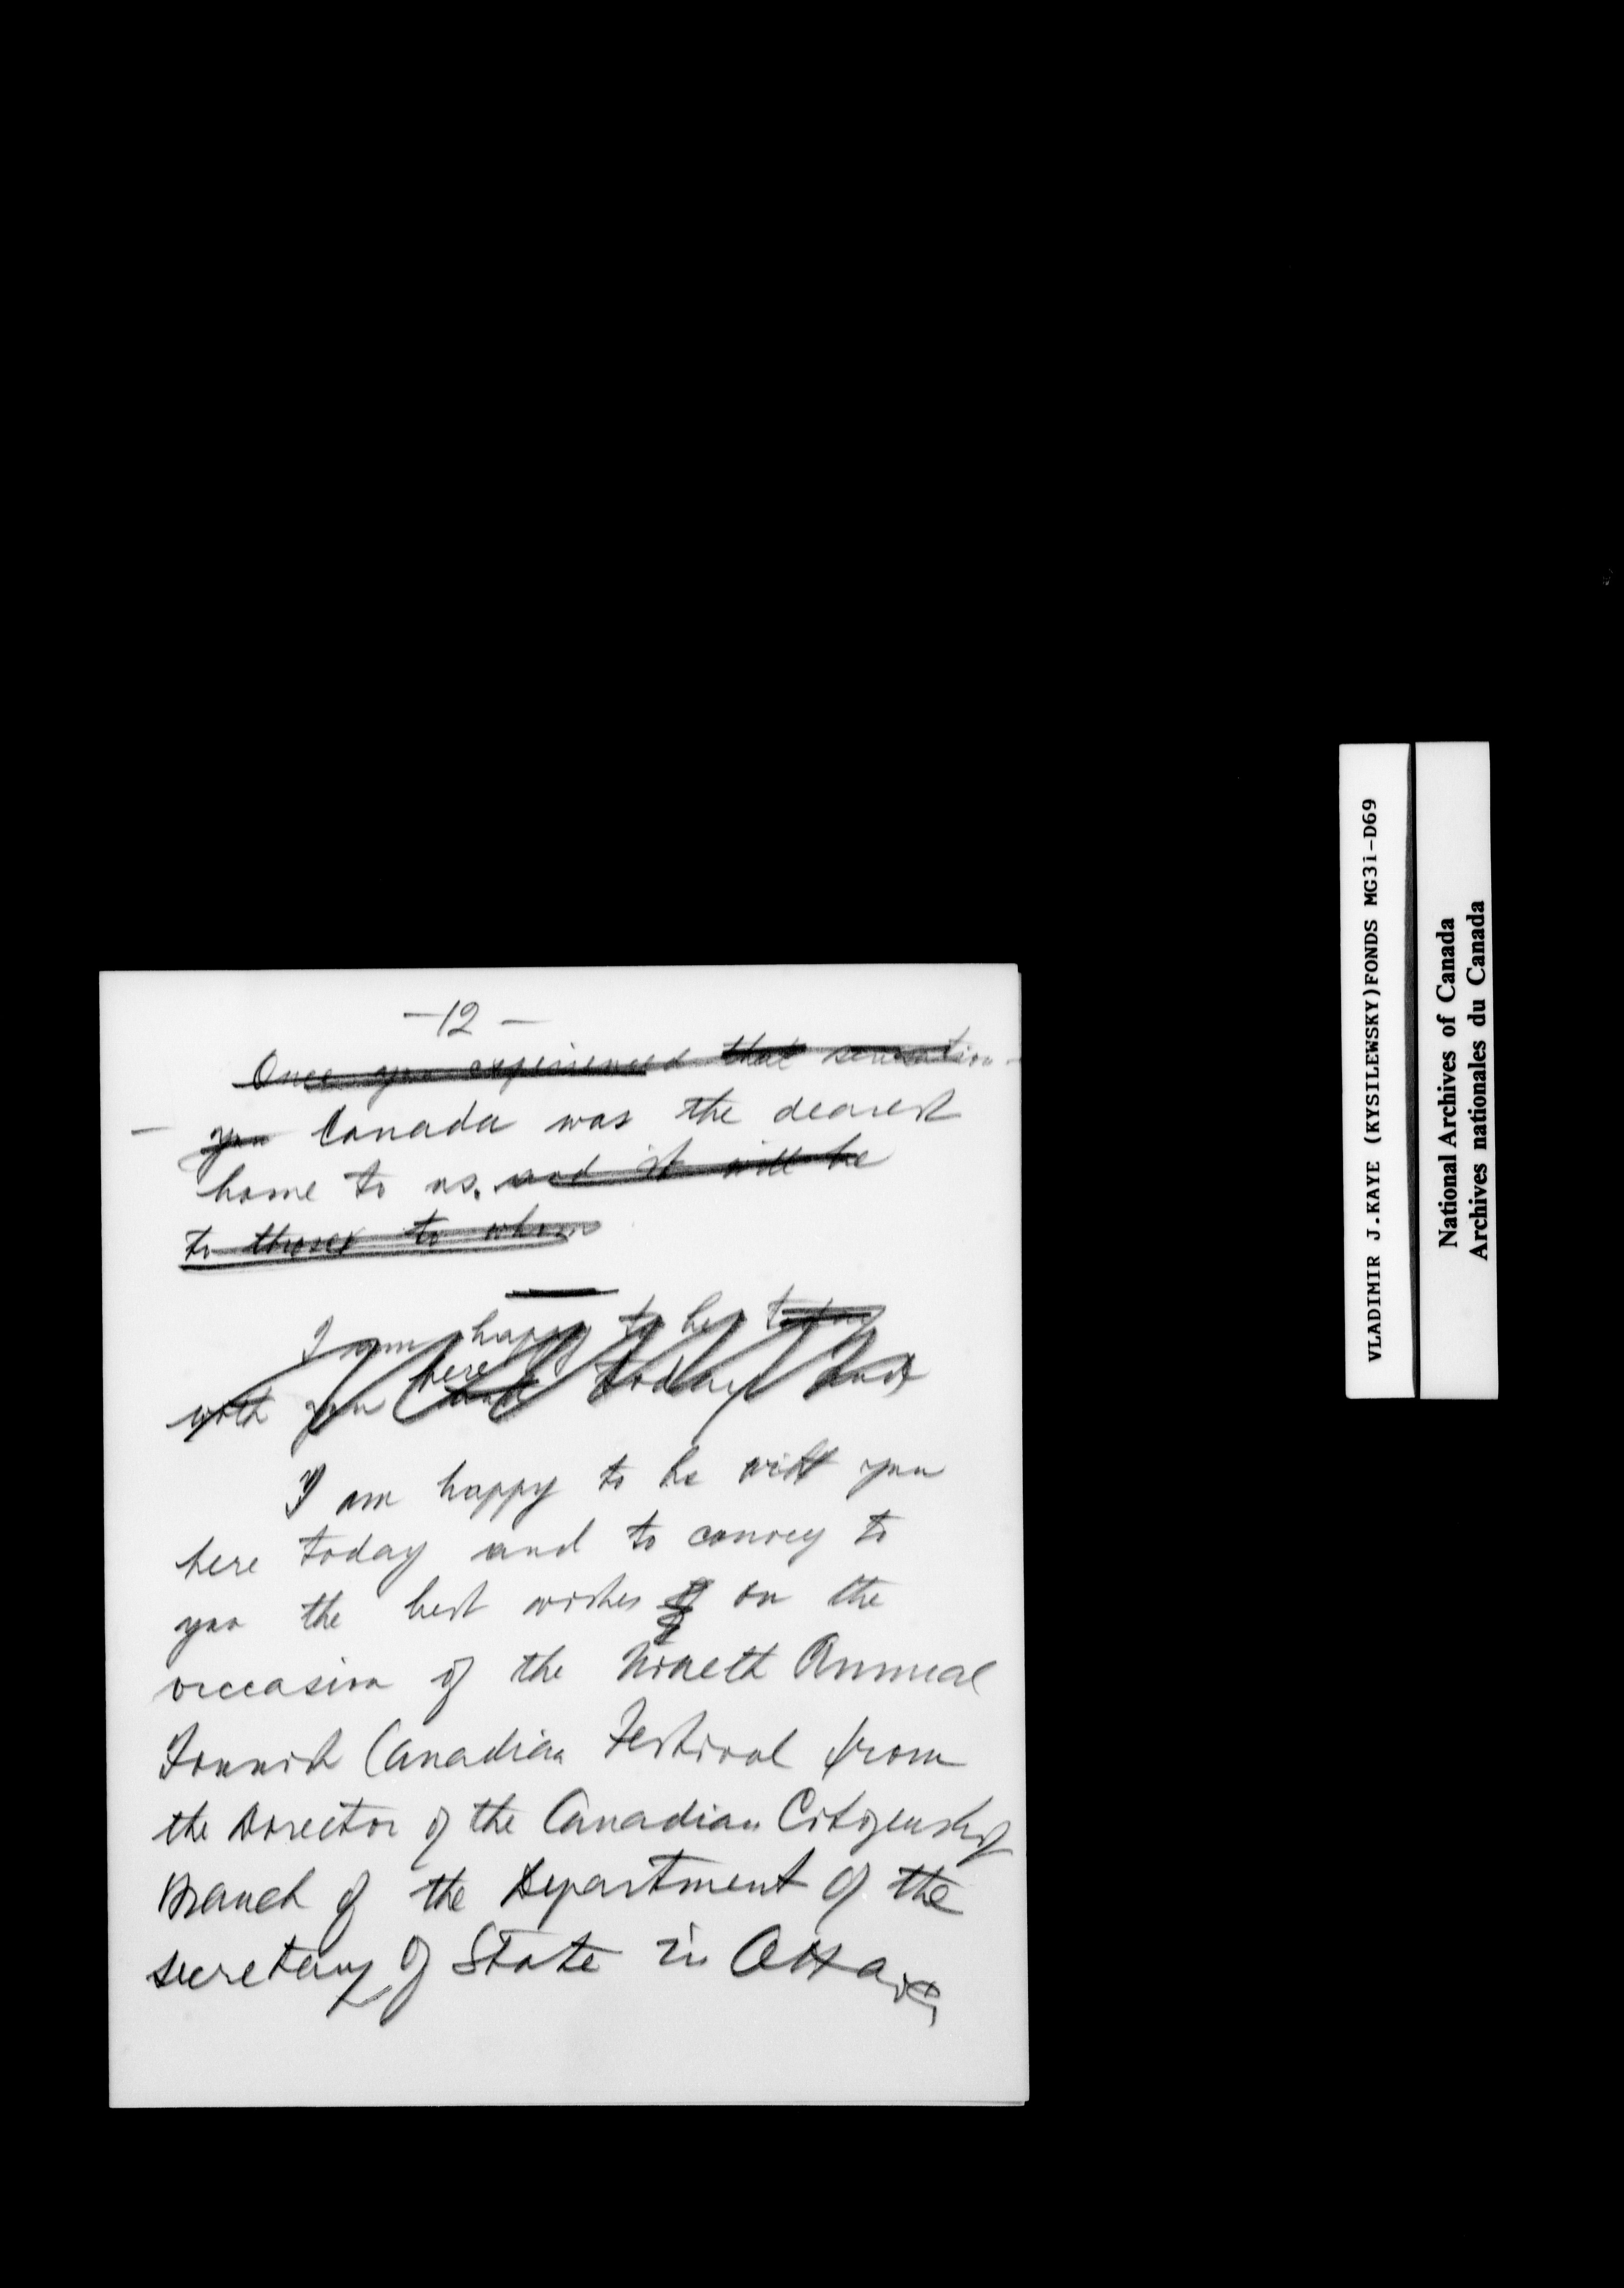 -12-
Once you experienced that sensation
- you Canada was the dearest
home to us. and it will be
to those to whom
I am happy to be today
here
with you today and
I am happy to be with you
here today and to convey to
you the best wishes on the
occasion of the Nineth Annual
Finnish Canadian Festival from
the Director of the Canadian Citizenship
Branch of the Department of the
Secretary of State in Ottawa,
VLADIMIR J.KAYE (KYSILEWSKY)FONDS MG31-D69
National Archives of Canada
Archives nationales du Canada